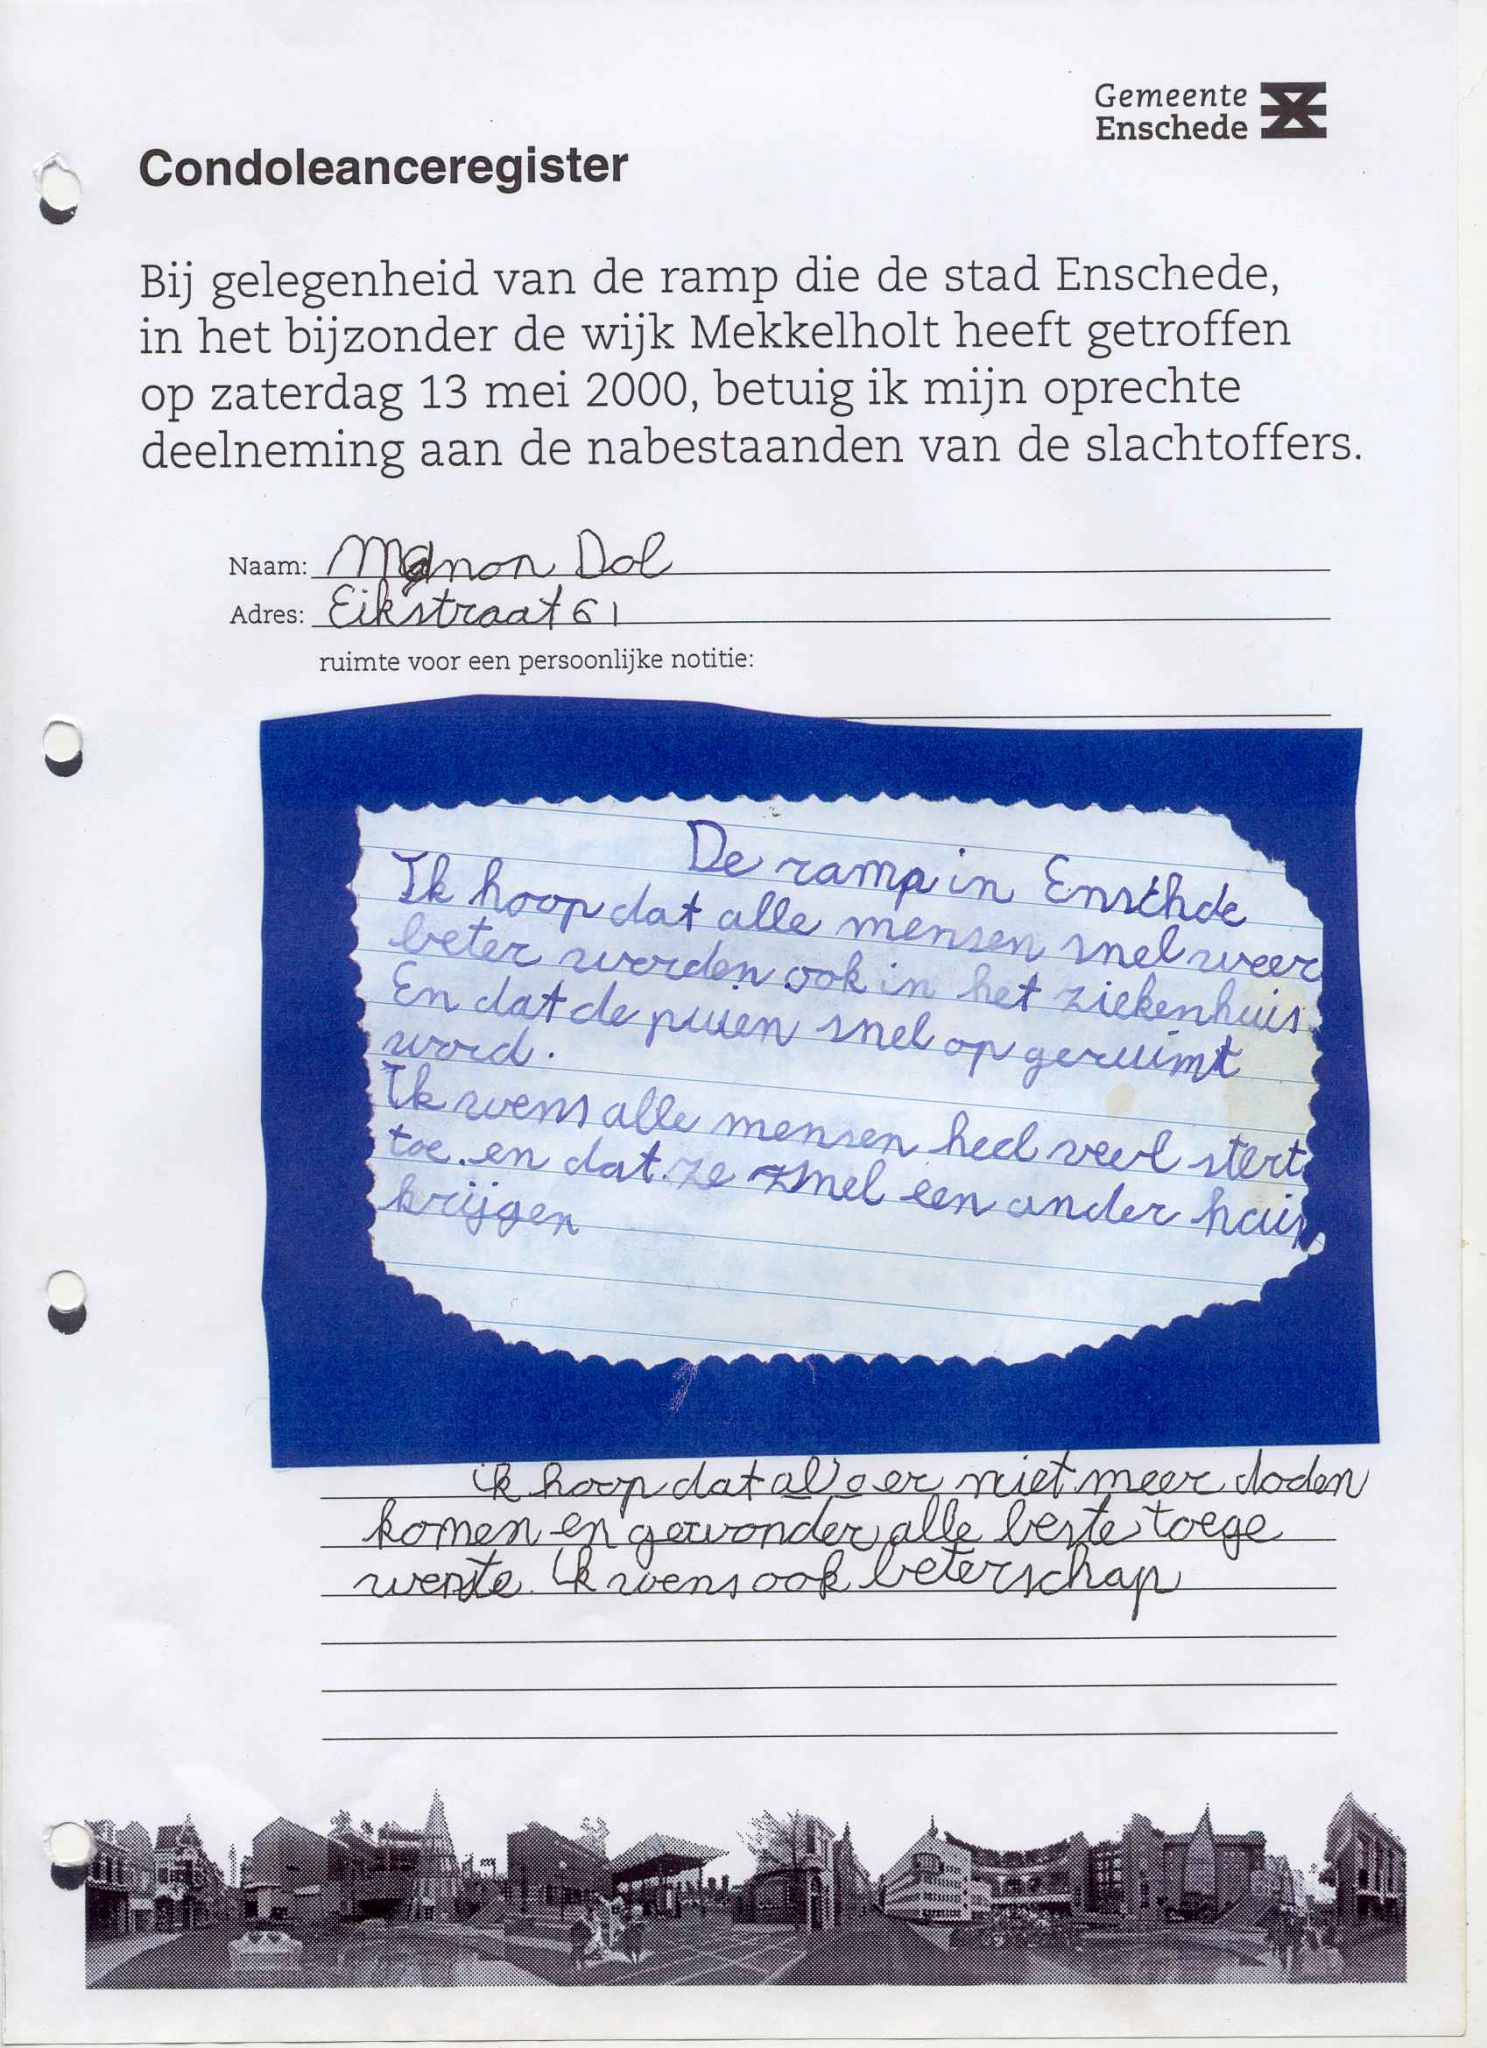 Gemeente
Enschede
Condoleanceregister
Bij gelegenheid van de ramp die de stad Enschede,
in het bijzonder de wijk Mekkelholt heeft getroffen
op zaterdag 13 mei 2000, betuig ik mijn oprechte
deelneming aan de nabestaanden van de slachtoffers.
Naam: Manon Dol
Adres: Eikstraat 61
ruimte voor een persoonlijke notitie:
De ramp in Ensthde
Ik hoop dat alle mensen snel weer
beter worden ook in het ziekenhuis
En dat de puien snel op geruimt
word.
Ik wens alle mensen heel veel stert
toe. en dat ze znel een ander huis
krijgen
ik hoop dat er niet meer doden
komen en gewonder alle beste toege
wenste. Ik wens ook beterschap